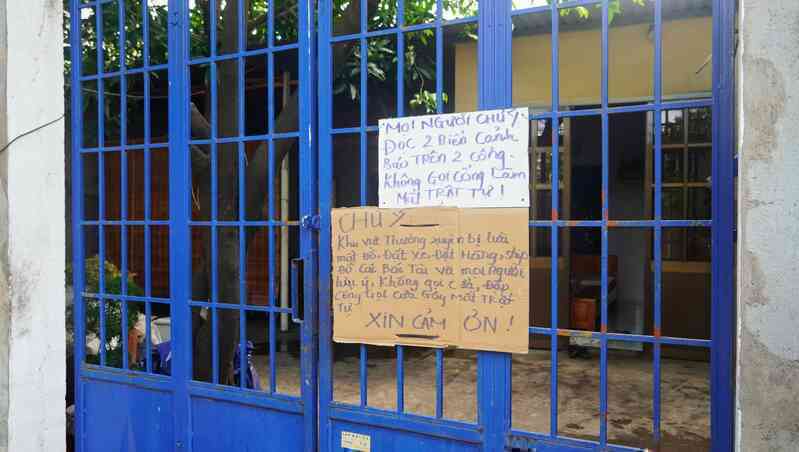 MỌI NGƯỜI CHÚ Ý
ĐỌC 2 BIỂN CẢNH
BÁO TRÊN 2 CỔNG.
Không GỌI CỔNG LÀM
MẤT TRẬT TỰ !
CHÚ Ý
Khu vực Thường xuyên bị lừa
mất Đồ, Đặt Xe, Đặt Hàng, ship
Đồ Các Bác Tài và mọi Người
lưu ý, Không gọi cửa, Đập
Cổng gọi Cửa Gây Mất Trật
Tự
XIN CẢM ƠN !